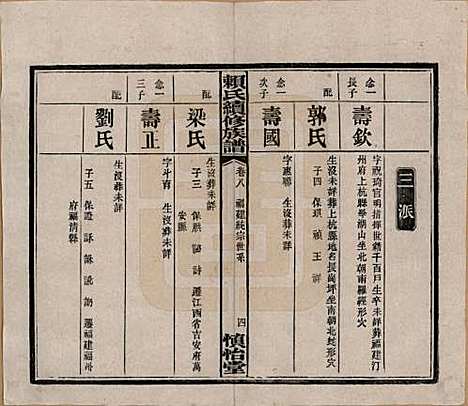 三派
念一
長子
壽欽
字祝琦官明指揮世襲千百戶生卒未詳葬福建汀
州府上杭縣學湖山坐北朝南羅經形穴
配
郭氏
生沒未詳葬上杭縣地名長崗坪坐南朝北蛇形穴
子四 保琪 禎 王 祥
念一
次子
壽國
字惠聯 生沒葬未詳
配
梁氏
生沒葬未詳
子三 保 詩 遷江西省吉安府萬
安縣
念一
三子
壽正
字斗南 生沒葬未詳
配
劉氏
生沒葬未詳
子五 保證 詠 諒 遷福建福州
府福清縣
賴氏續修族譜
卷八 福建統宗世系
四
慎怡堂